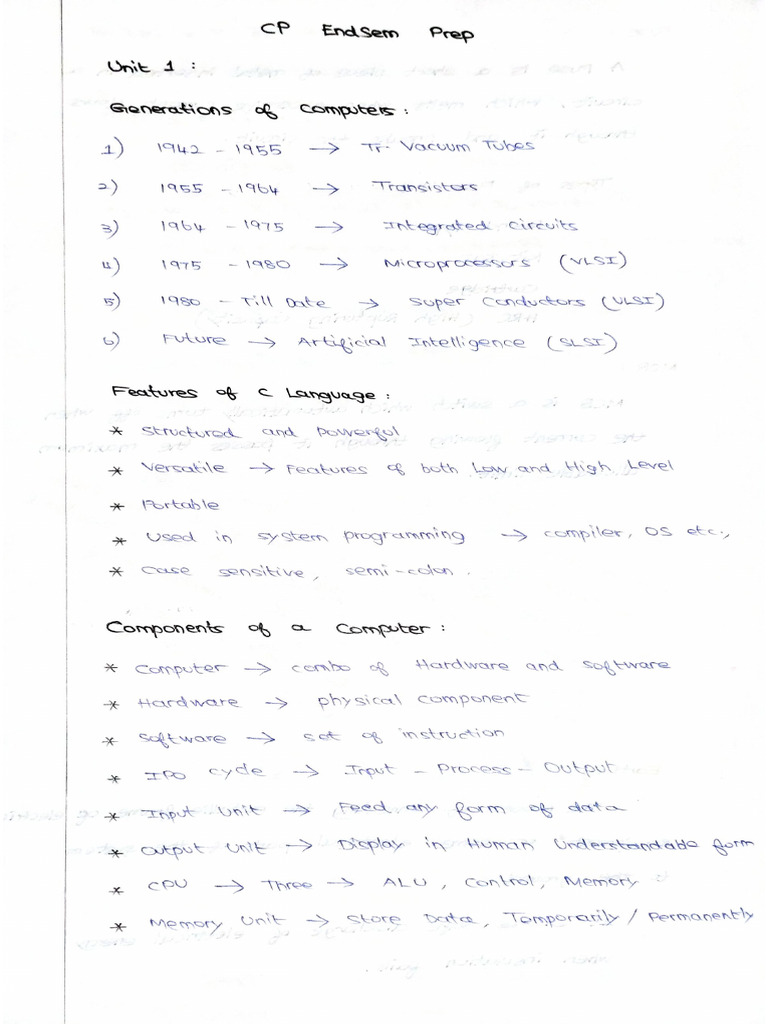 CP EndSem Prep
Unit 1 :
Generations of Computers :
1) 1942 - 1955 → Tr. Vacuum Tubes
2) 1955 - 1964 → Transistors
3) 1964 - 1975 → Integrated circuits
4) 1975 - 1980 → Microprocessors (VLSI)
5) 1980 - Till Date → Super Conductors (VLSI)
6) Future → Artificial Intelligence (SLSI)
Features of C Language :
* Structured and Powerful
* Versatile → Features of both Low and High Level
* Portable
* Used in system programming → compiler, OS etc.,
* Case sensitive, semi-colon.
Components of a Computer :
* Computer → combo of Hardware and software
* Hardware → physical component
* Software → set of instruction
* IPO cycle → Input - Process - Output
* Input Unit → Feed any form of data
* Output Unit → Display in Human Understandable form
* CPU → Three → ALU, Control, Memory
* Memory Unit → Store Data, Temporarily / Permanently